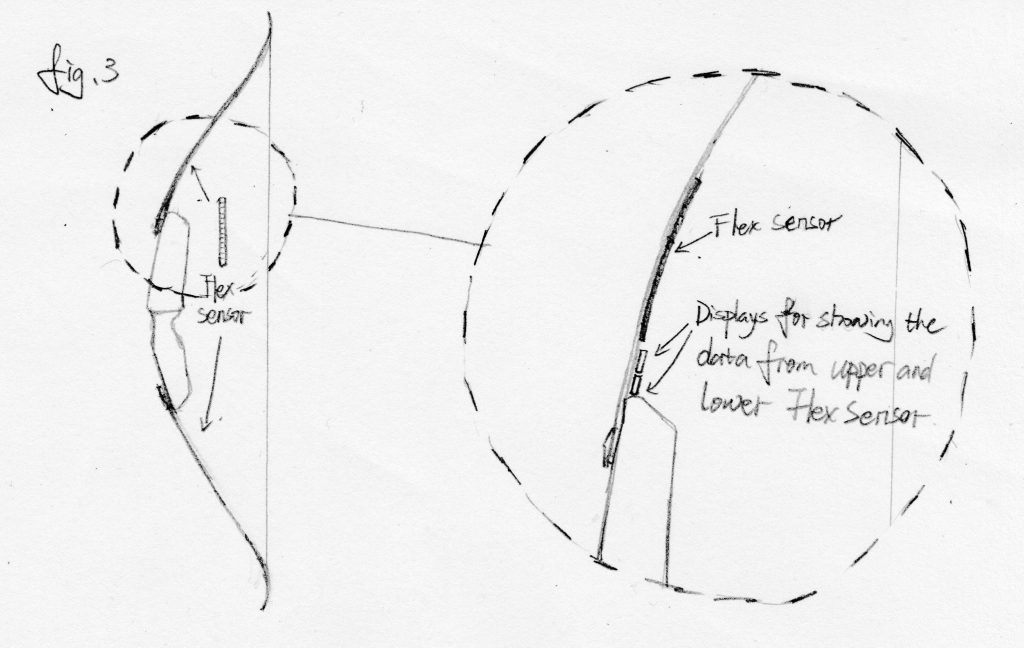 fig.3
Flex
sensor
Flex sensor
Displays for showing the
data from upper and
lower Flex sensor.